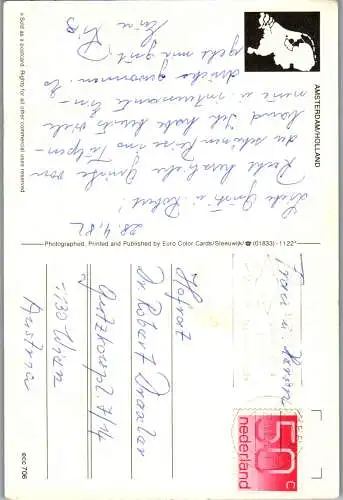 AMSTERDAM/HOLLAND
28.4.82
Liebe Gritti u. Robert!
Recht herzliche Grüße von
der schönen Reise ins Tulpen-
land. Ich habe bereits viele
neue u. interessante Ein-
drücke gewonnen. Es
geht mir gut.
» Sold as a postcard. Rights for all other commercial uses reserved
Photographed, Printed and Published by Euro Color Cards/Sleeuwijk/☎(01833)-1122*
ecc 706
50 c
nederland
u. Herrn
Hofrat
Dr. Robert Draxler
7/14
1130 Wien
Austria